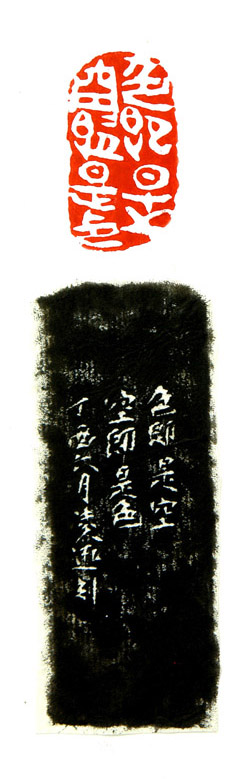 色即是空
空即是色
色即是空
空即是色
丁酉六月刻